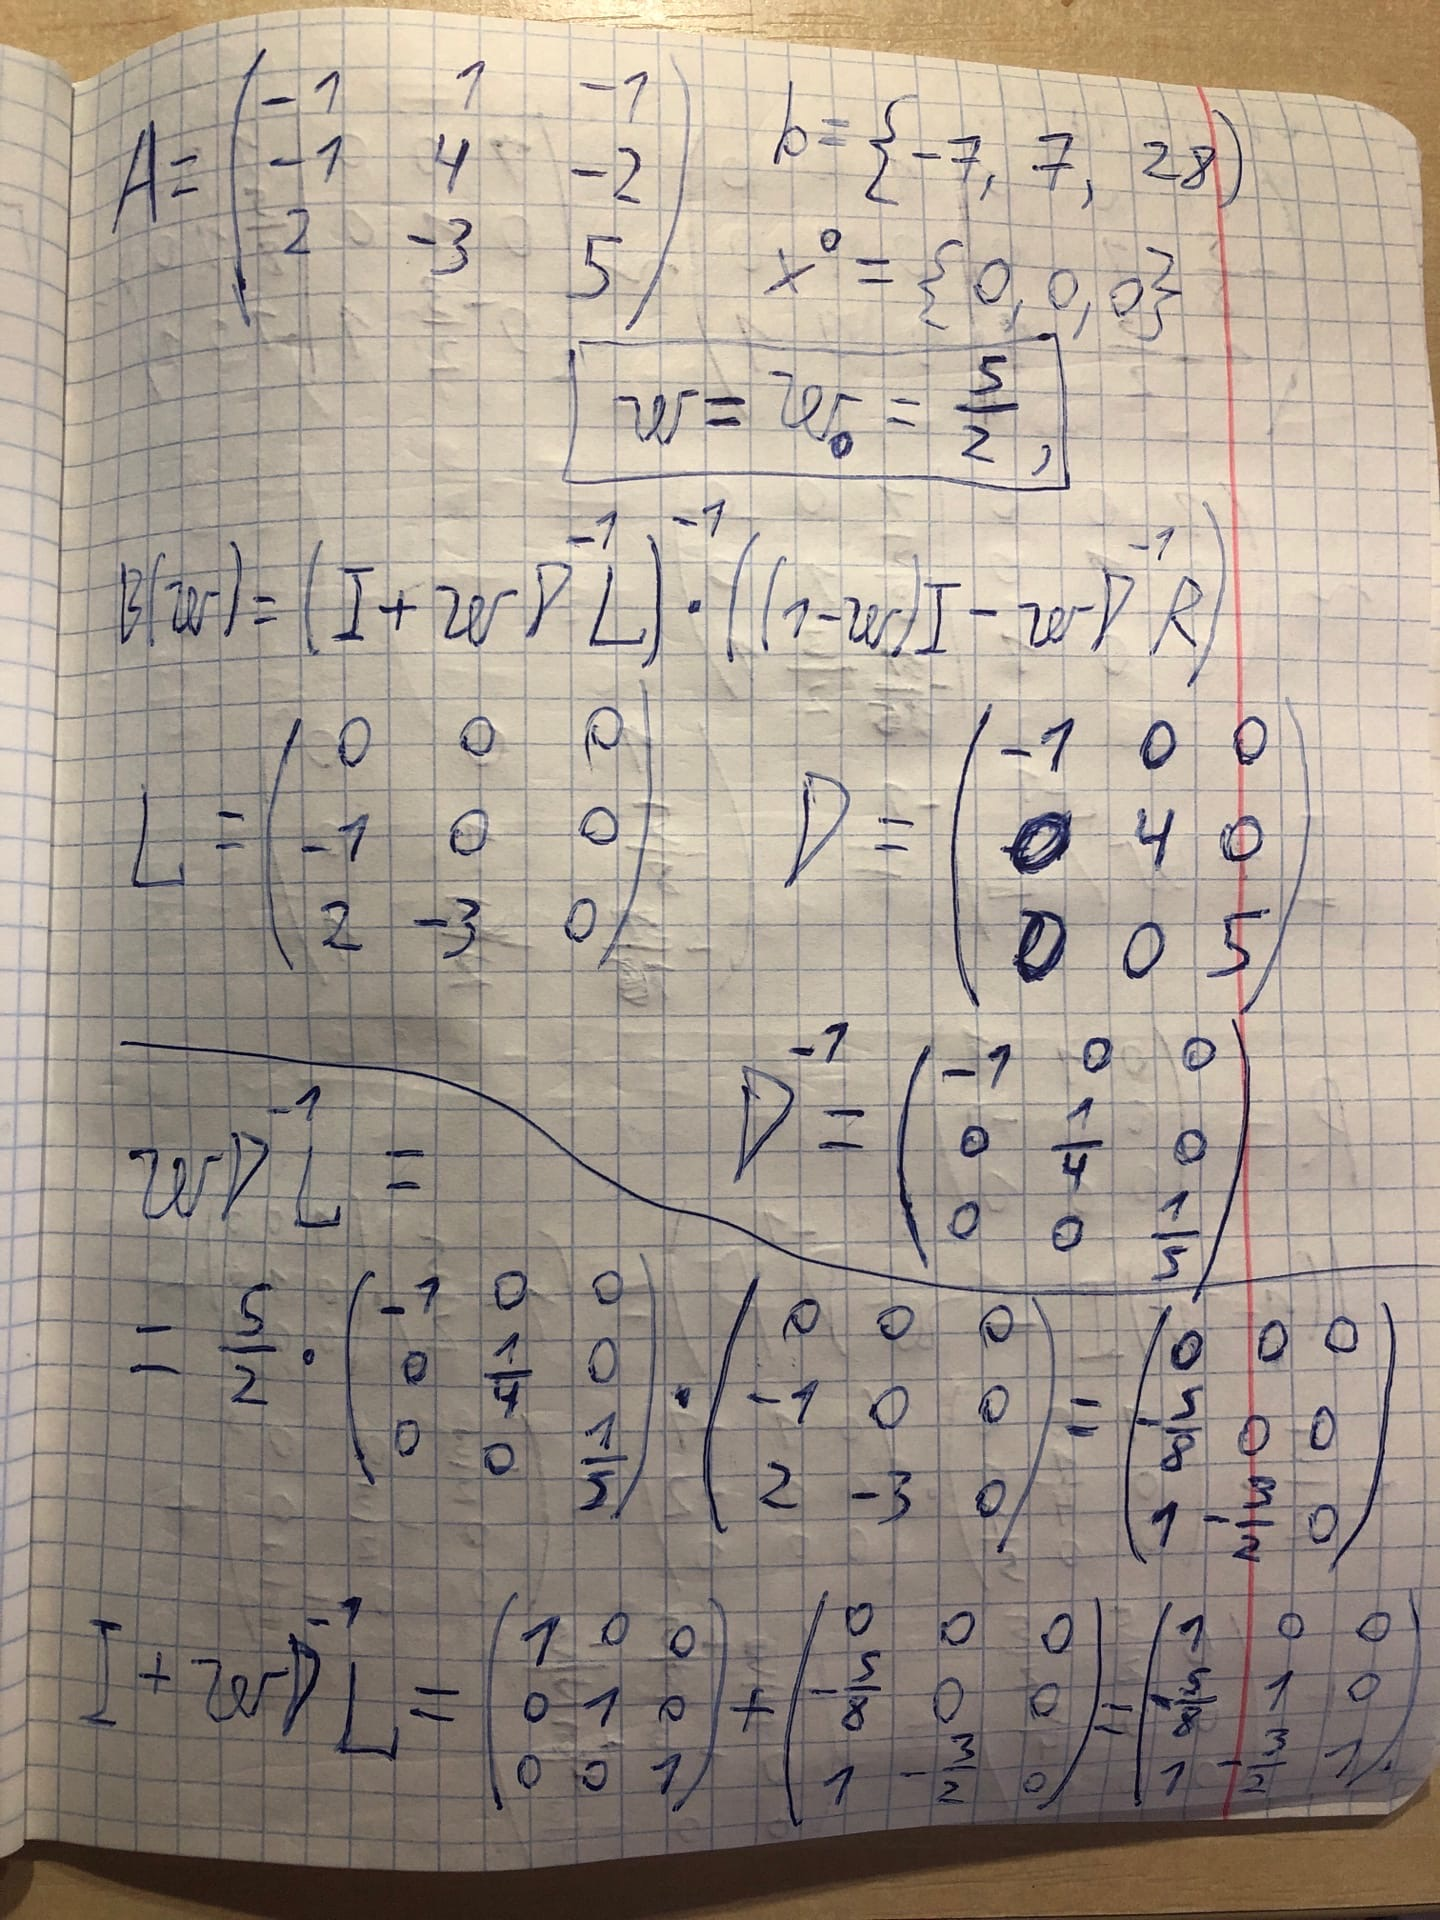 A = ( -1 1 -1
-1 4 -2
2 -3 5 )
b = { -7, 7, 28 )
x⁰ = { 0, 0, 0 }
w = w₀ = 5/2 ,
B(w) = ( I + w D⁻¹ L )⁻¹ · ( (1-w) I - w D⁻¹ R )
L = ( 0 0 0
-1 0 0
2 -3 0 )
D = ( -1 0 0
0 4 0
0 0 5 )
D⁻¹ = ( -1 0 0
0 1/4 0
0 0 1/5 )
w D⁻¹ L =
= 5/2 · ( -1 0 0
0 1/4 0
0 0 1/5 ) · ( 0 0 0
-1 0 0
2 -3 0 ) = ( 0 0 0
-5/8 0 0
1 -3/2 0 )
I + w D⁻¹ L = ( 1 0 0
0 1 0
0 0 1 ) + ( 0 0 0
-5/8 0 0
1 -3/2 0 ) = ( 1 0 0
-5/8 1 0
1 -3/2 1 ).